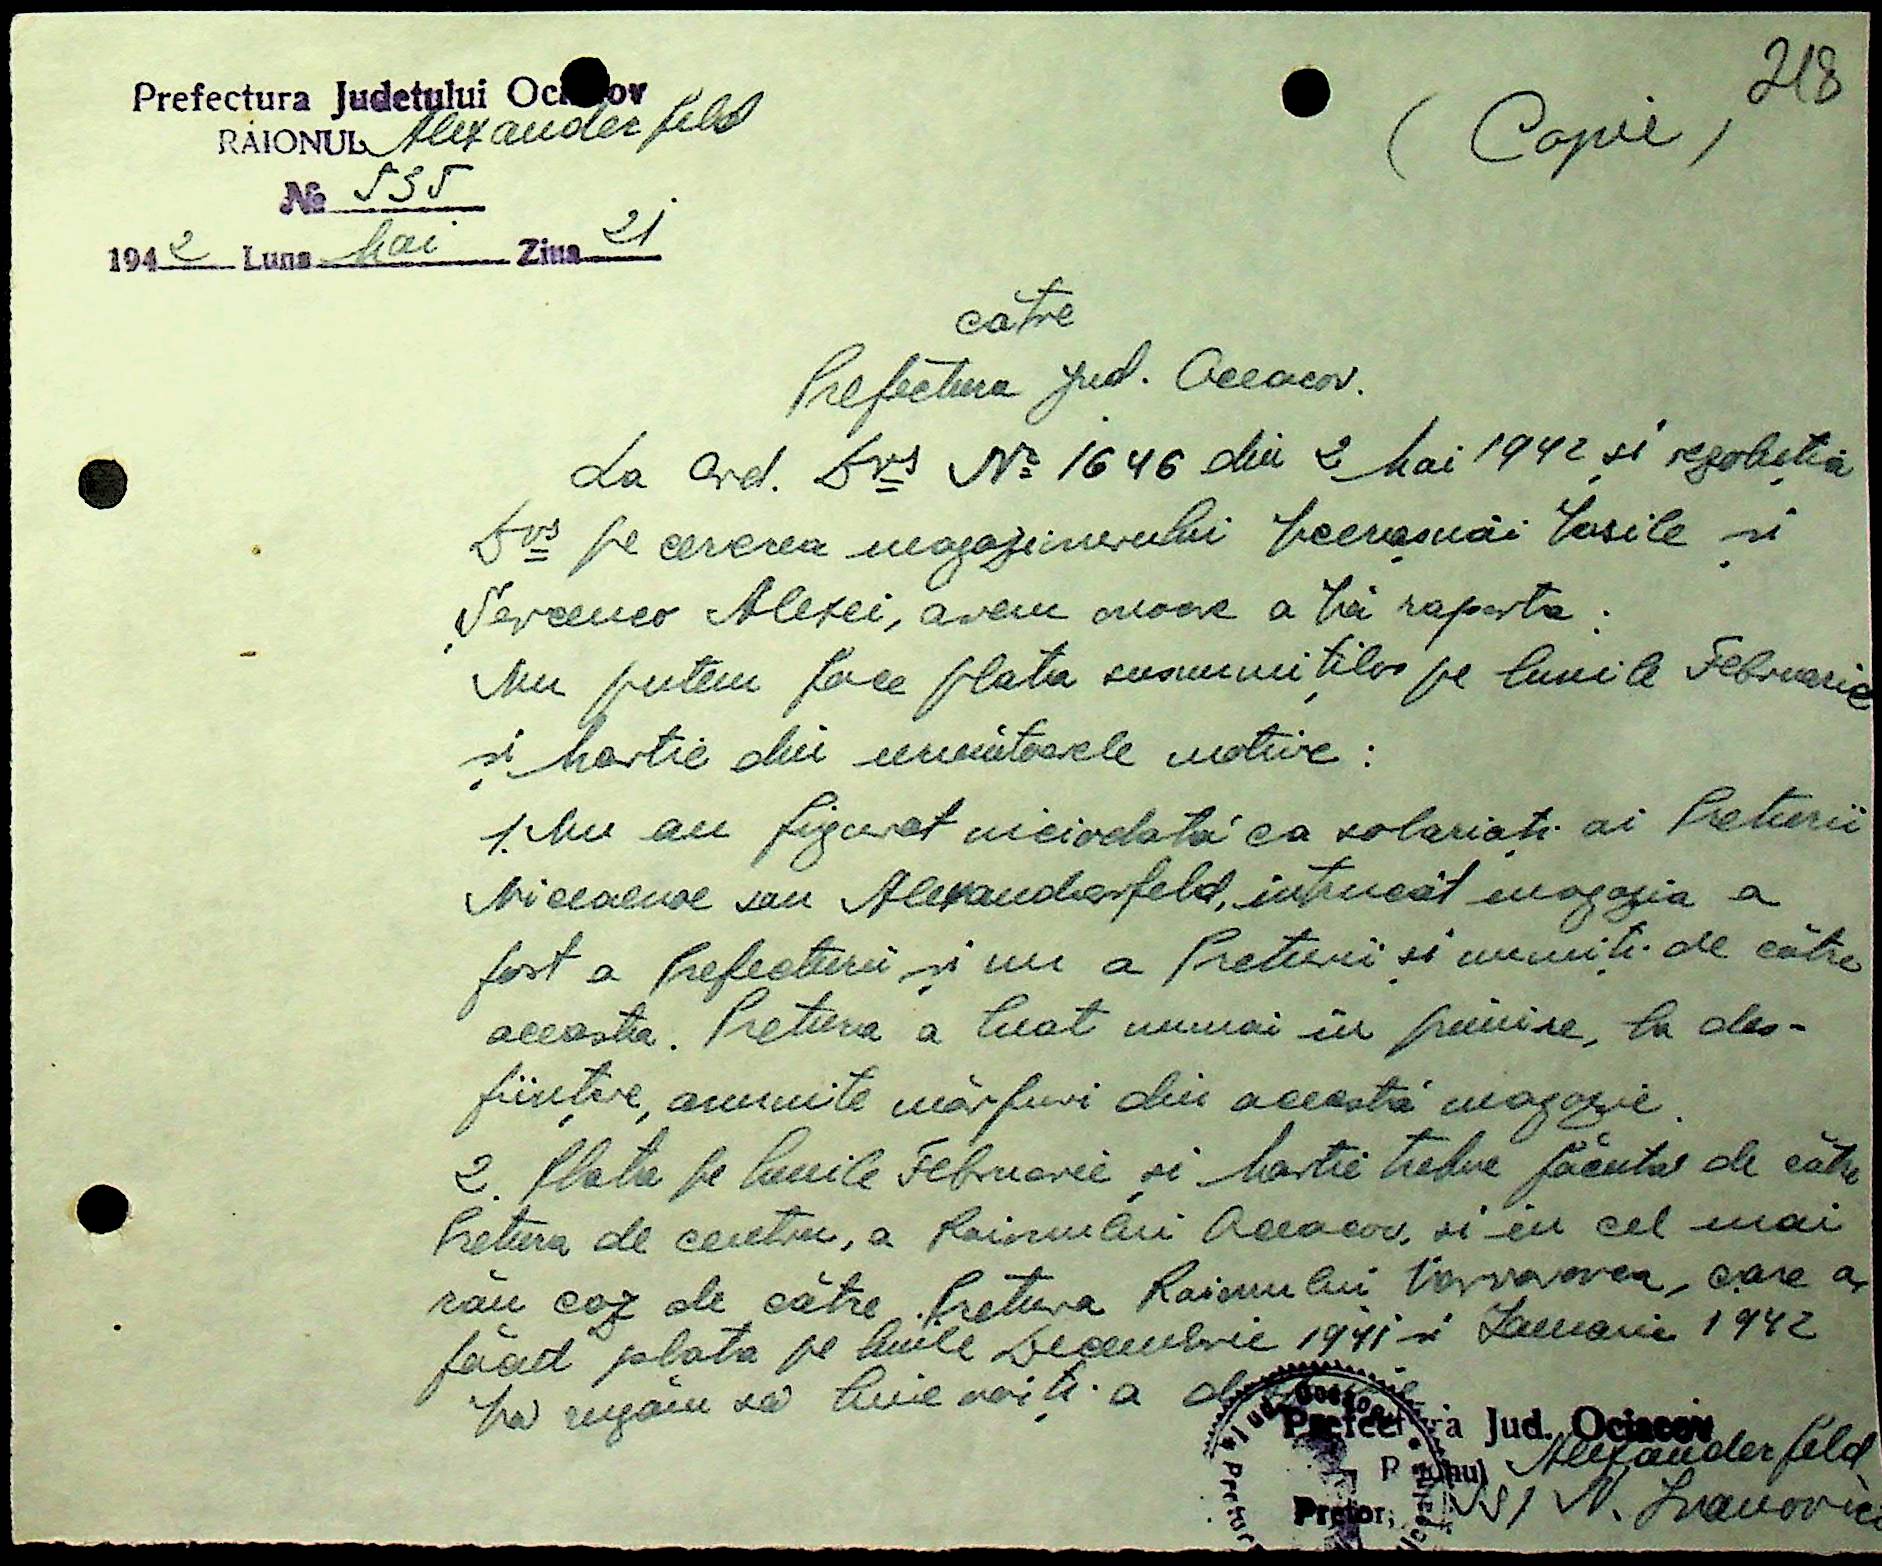 218
Prefectura Judetului Ociacov
RAIONUL Alexanderfeld
(Copie)
№ 535
1942 Luna Mai Ziua 21
către
Prefectura Jud. Oceacov.
La Ord. Dvs No 1646 din 2 Mai 1942 și rezoluția
Dvs pe cererea magazinerului Vasile și
Șevcenco Alexei, avem onoare a Vă raporta:
Nu putem face plata susnumiților pe lunile Februarie
și Martie din următoarele motive:
1. Nu au figurat niciodată ca salariați ai Preturii
sau Alexanderfeld, întrucât magazia a
fost a Prefecturii și nu a Preturii și numiți de către
aceasta. Pretura a luat numai în primire, la des-
ființare, anumite mărfuri din această magazie.
2. Plata pe lunile Februarie și Martie trebue făcută de către
Pretura de centru, a Raionului Oceacov, si în cel mai
rău caz de către Pretura Raionului Varvarovca, care a
făcut plata pe lunile Decembrie 1941 si Ianuarie 1942
Vă rugăm să bine voiți a
Prefectura Jud. Ociacov
Raionul Alexanderfeld
Pretor, ss/ N. Ivanovici